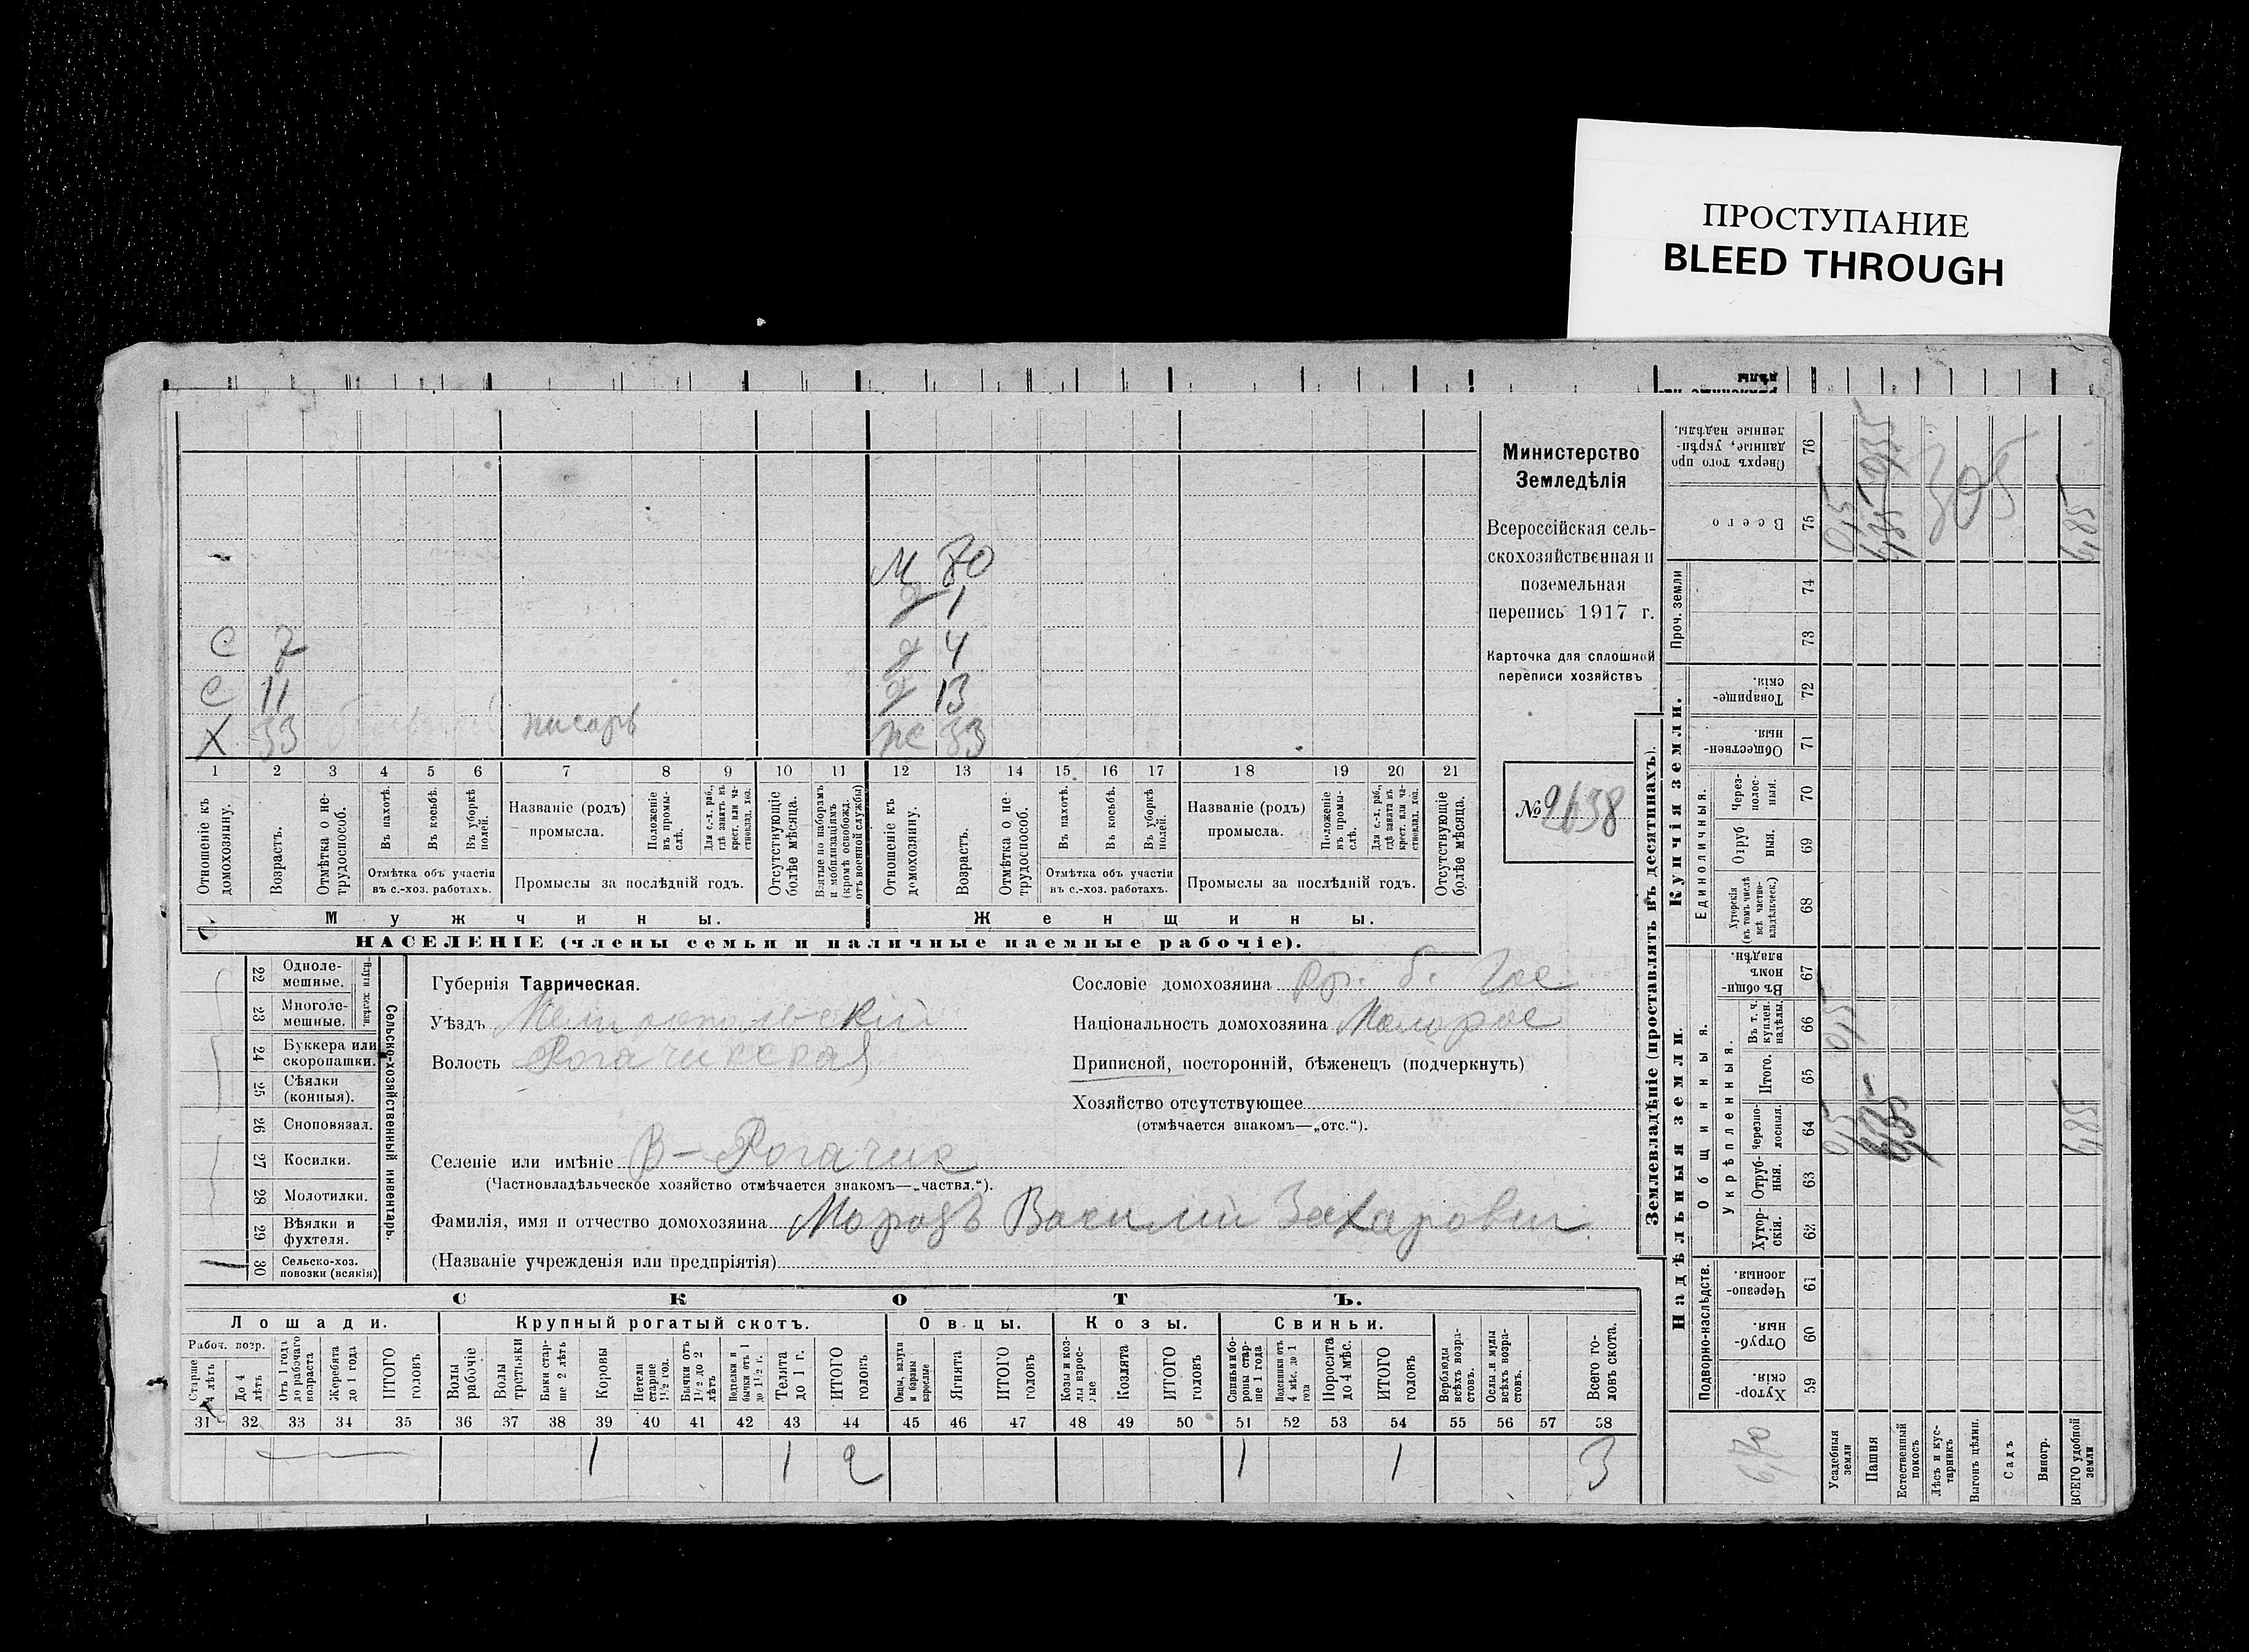 ПРОСТУПАНИЕ
BLEED THROUGH
Министерство
Земледѣлія
Всероссійская сель-
скохозяйственная и
поземельная
перепись 1917 г.
Карточка для сплошной
переписи хозяйствъ
№ 2638
М 70
д 1
С 7 д 4
С 11 д 13
Х 33 писарь ж 33
1 2 3 4 5 6 7 8 9 10 11 12 13 14 15 16 17 18 19 20 21
Отношеніе къ домохозяину.
Возрастъ.
Отмѣтка о не-трудоспособ.
Въ пахотѣ.
Въ косьбѣ.
Въ уборкѣ полей.
Отмѣтка объ участіи
въ с.-хоз. работахъ.
Названіе (родъ)
промысла.
Положеніе въ промы-слѣ.
Для с.-х. раб., гдѣ занятъ въ крест. или ча-стновлад. хоз.
Промыслы за послѣдній годъ.
Отсутствующіе болѣе мѣсяца.
Взятые по наборамъ и мобилизаціямъ (кромѣ освобожд. отъ военной службы)
Отношеніе къ домохозяину.
Возрастъ.
Отмѣтка о не-трудоспособ.
Въ пахотѣ.
Въ косьбѣ.
Въ уборкѣ полей.
Отмѣтка объ участіи
въ с.-хоз. работахъ.
Названіе (родъ)
промысла.
Положеніе въ промы-слѣ.
Для с.-х. раб., гдѣ занята въ крест. или ча-стновлад. хоз.
Промыслы за послѣдній годъ.
Отсутствующіе болѣе мѣсяца.
Мужчины. Женщины.
НАСЕЛЕНІЕ (члены семьи и наличные наемные рабочіе).
22 Однолемешные.
23 Многолемешные.
Плуги желѣзн.
24 Буккера или скоропашки.
25 Сѣялки (конныя).
26 Сноповязал.
27 Косилки.
28 Молотилки.
29 Вѣялки и фухтеля.
30 Сельско-хоз. повозки (всякія) 1
Сельско-хозяйственный инвентарь.
Губернія Таврическая.
Уѣздъ Мелитопольскій
Волость Рогачикская
Сословіе домохозяина
Національность домохозяина Малорос
Приписной, посторонній, бѣженецъ (подчеркнуть)
Хозяйство отсутствующее
(отмѣчается знакомъ—„отс.“).
Селеніе или имѣніе В-Рогачик
(Частновладѣльческое хозяйство отмѣчается знакомъ—„частвл.“).
Фамилія, имя и отчество домохозяина Морозъ Василий Захарович
(Названіе учрежденія или предпріятія)
СКОТЪ.
Лошади. Крупный рогатый скотъ. Овцы. Козы. Свиньи.
Рабоч. возр.
Старше 4 лѣтъ
До 4 лѣтъ
Отъ 1 года до рабочаго возраста
Жеребята до 1 года
ИТОГО головъ
Волы рабочіе
Волы третьяки
Быки стар-ше 2 лѣтъ
Коровы
Нетели старше 1½ год.
Бычки отъ 1½ до 2 лѣтъ
Подтелки и бычки отъ 1 до 1½ г.
Телята до 1 г.
ИТОГО головъ
Овцы, валухи и бараны взрослые
Ягнята
ИТОГО головъ
Козы и коз-лы взрос-лые
Козлята
ИТОГО головъ
Свиньи и бо-ровы стар-ше 1 года
Подсвинки отъ 4 мѣс. до 1 года
Поросята до 4 мѣс.
ИТОГО головъ
Верблюды всѣхъ возра-стовъ.
Ослы и мулы всѣхъ возра-стовъ.
Всего го-ловъ скота.
31 32 33 34 35 36 37 38 39 40 41 42 43 44 45 46 47 48 49 50 51 52 53 54 55 56 57 58
1 1 2 1 1 3
Землевладѣніе (проставлять въ десятинахъ).
Надѣльныя земли. Купчія земли.
Подворно-наслѣдств.
Общинныя.
Укрѣпленныя.
Единоличныя.
Проч. земли
59 Хутор-скія.
60 Отруб-ныя.
61 Черезпо-лосныя.
62 Хутор-скія.
63 Отруб-ныя.
64 Черезпо-лосныя.
65 Итого.
66 Въ т. ч. куплен. надѣлы.
67 Въ общи-номъ владѣн.
68 Хуторскія (въ томъ числѣ всѣ частно-владѣльческ.)
69 Отруб ныя.
70 Через-полос-ныя.
71 Обществен-ныя.
72 Товарище-скія.
73
74
75 Всего
76 Сверхъ того про данные, укрѣп-ленные надѣлы.
Усадебныя земли
Пашня
Естественный покосъ
Лѣсъ и кус-тарникъ
Выгонъ цѣлин.
Садъ
Виногр.
ВСЕГО удобной земли
0,5
305
6,85